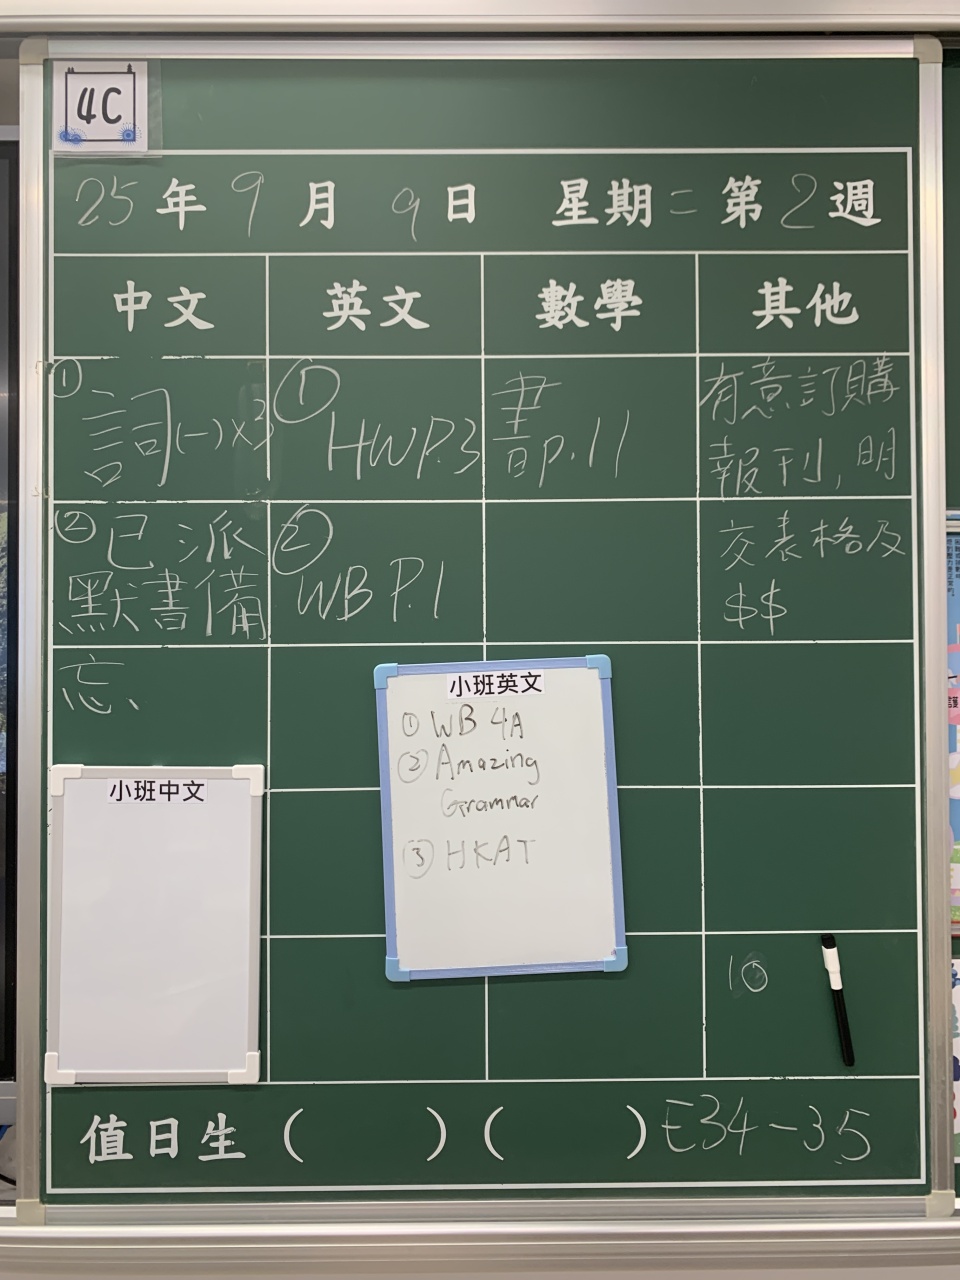 4C
25年9月9日 星期二 第2週
中文 英文 數學 其他
① 詞(一)x3
② 已派
默書備
忘、
① HWP.3
② WB P.1
書p.11
有意訂購
報刊,明
交表格及
$$
小班中文
小班英文
① WB 4A
② Amazing
Grammar
③ HKAT
10
值日生( )( )E34-35